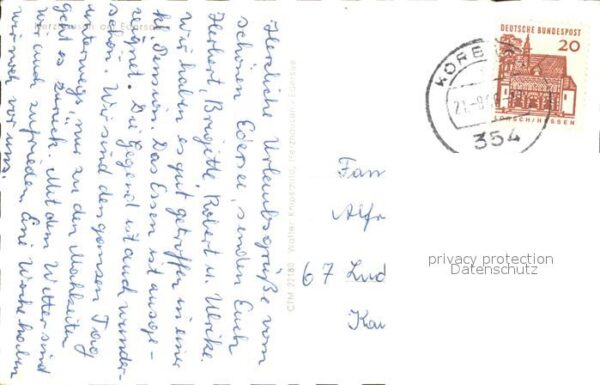 Herzliche Urlaubsgrüße vom
schönen Edersee, senden Euch
Herbert, Brigitte, Robert u. Ulrike.
Wir haben es gut getroffen in einer
Pension. Das Essen ist ausge-
zeignet. Die Gegend ist auch wunder-
schön. Wir sind den ganzen Tag
unterwegs, nur zu den Mahlzeiten
geht es zurück. Mit dem Wetter sind
wir auch zufrieden. Eine Woche haben
wir noch vor uns.
CTM 22180 Walter Knipschild, Herzhausen / Edersee
DEUTSCHE BUNDESPOST
20
LORSCH/HESSEN
KORB
21.-8
354
Fam
Alfr
67 Lud
Kai
privacy protection
Datenschutz